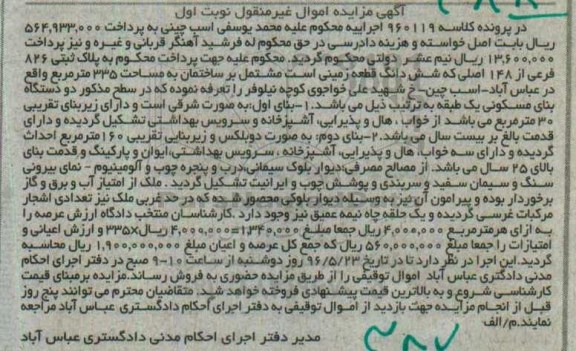 آگهی مزایده اموال غیرمنقول نوبت اول
در پرونده کلاسه ۹۶۰۱۱۹ اجراییه محکوم علیه محمد یوسفی اسب چینی به پرداخت ۵۶۴,۹۳۳,۰۰۰
ریال بابت اصل خواسته و هزینه دادرسی در حق محکوم له فرشید آهنگر قربانی و غیره و نیز پرداخت
۱۳,۶۰۰,۰۰۰ ریال نیم عشر دولتی محکوم گردید. محکوم علیه جهت پرداخت محکوم به پلاک ثبتی ۸۲۶
فرعی از ۱۴۸ اصلی که شش دانگ قطعه زمینی است مشتمل بر ساختمان به مساحت ۳۳۵ مترمربع واقع
در عباس آباد-اسب چین-خ شهید علی خواجوی کوچه نیلوفر را تعرفه نموده که در سطح مذکور دو دستگاه
بنای مسکونی یک طبقه به ترتیب ذیل می باشد. ۱-بنای اول:به صورت شرقی است و دارای زیربنای تقریبی
۳۰ مترمربع می باشد از خواب ، هال و پذیرایی، آشپزخانه و سرویس بهداشتی تشکیل گردیده و دارای
قدمت بالغ بر بیست سال می باشد.۲-بنای دوم: به صورت دوبلکس و زیربنایی تقریبی ۱۶۰مترمربع احداث
گردیده و دارای سه خواب، هال و پذیرایی، آشپزخانه ، سرویس بهداشتی،ایوان و پارکینگ و قدمت بنای
بالای ۲۵ سال می باشد. از مصالح مصرفی:دیوار بلوک سیمانی،درب و پنجره چوب و آلومینیوم - نمای بیرونی
سنگ و سیمان سفید و سربندی و پوشش چوب و ایرانیت تشکیل گردید . ملک از امتیاز آب و برق و گاز
برخوردار بوده و پیرامون آن نیز به وسیله دیوار بلوکی محصور شده که در حد غربی ملک نیز تعدادی اشجار
مرکبات غرسی گردیده و یک حلقه چاه نیمه عمیق نیز وجود دارد .کارشناسان منتخب دادگاه ارزش عرصه را
به ازای هرمترمربع ۴,۰۰۰,۰۰۰ ریال جمعا مبلغ ۱۳۴۰,۰۰۰,۰۰۰=۴,۰۰۰,۰۰۰ ریال×۳۳۵ و ارزش اعیانی و
امتیازات را جمعا مبلغ ۵۶۰,۰۰۰,۰۰۰ ریال که جمع کل عرصه و اعیان مبلغ ۱,۹۰۰,۰۰۰,۰۰۰ ریال محاسبه
گردید.این اجرا در نظر دارد تا در تاریخ ۹۶/۵/۲۳ روز دوشنبه از ساعت ۱۰-۹ صبح در دفتر اجرای احکام
مدنی دادگتری عباس آباد اموال توقیفی را از طریق مزایده حضوری به فروش رساند.مزایده برمبنای قیمت
کارشناسی شروع و به بالاترین قیمت پیشنهادی فروخته خواهد شد. متقاضیان محترم می توانند پنج روز
قبل از انجام مزایده جهت بازدید از اموال توقیفی به دفتر اجرای احکام دادگستری عباس آباد مراجعه
نمایند.م/الف
مدیر دفتر اجرای احکام مدنی دادگستری عباس آباد